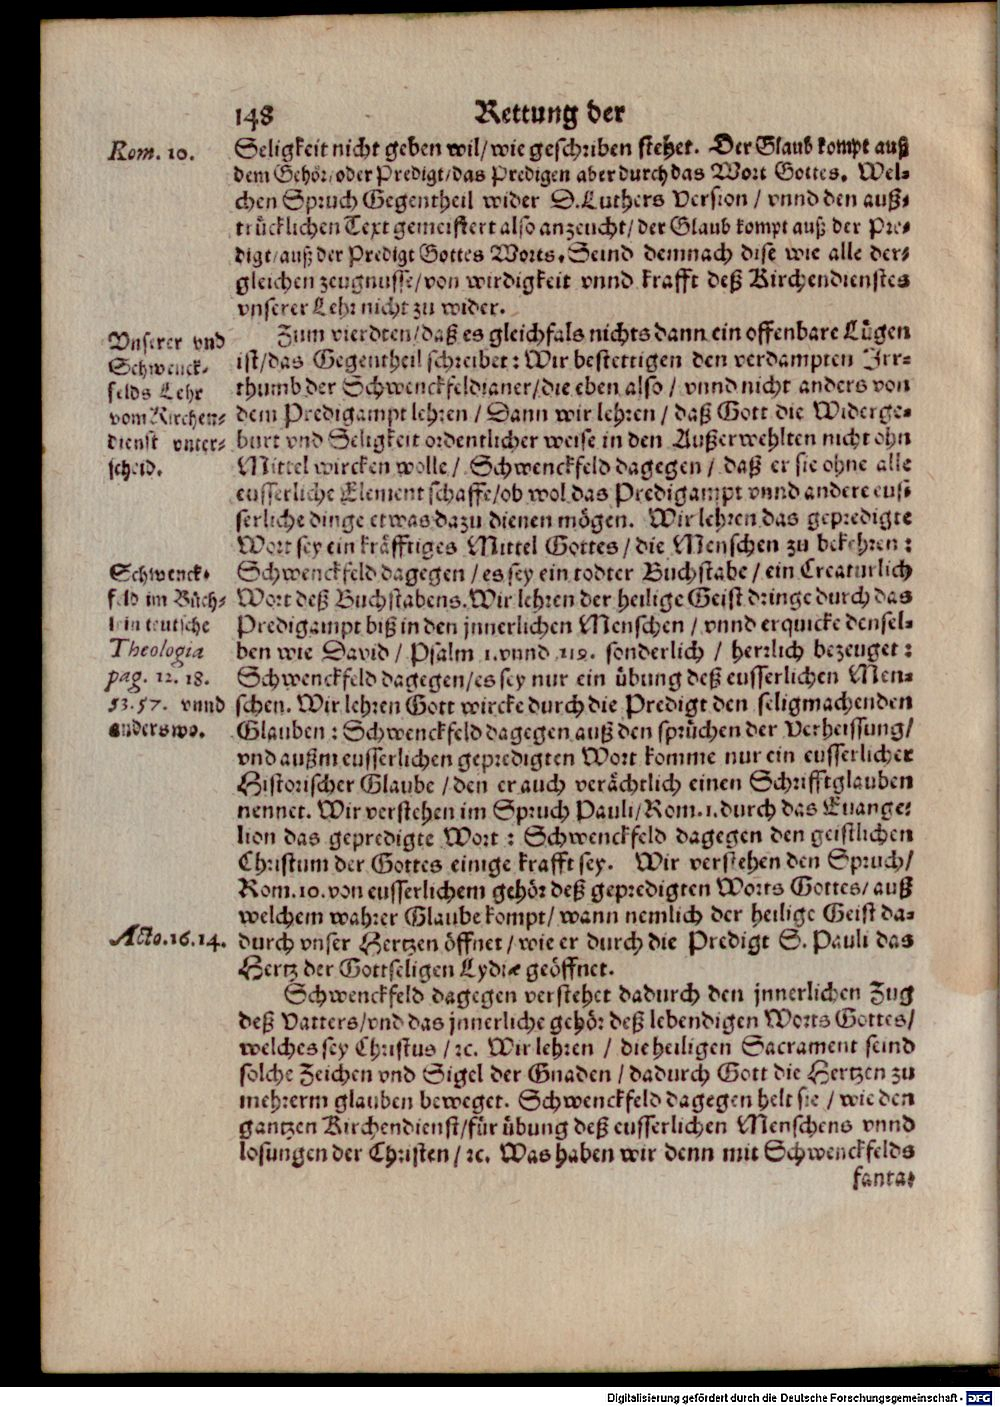 148 Rettung der
Rom. 10.
Seligkeit nicht geben wil/ wie geschriben stehet. Der Glaub kompt auß
dem Gehör/ oder Predigt/ das Predigen aber durch das Wort Gottes. Wel-
chen Spruch Gegentheil wider D. Luthers Version / vnnd den auß-
trücklichen Text gemeistert also anzeucht/ der Glaub kompt auß der Pre-
digt/ auß der Predigt Gottes Worts. Seind demnach dise wie alle der-
gleichen zeugnusse/ von wirdigkeit vnnd krafft deß Kirchendienstes
vnserer Lehr nicht zu wider.
Vnserer vnd
Schwenck-
felds Lehr
vom Kirchen-
dienst vnter-
scheid.
Zum vierdten/ daß es gleichfals nichts dann ein offenbare Lügen
ist/ das Gegentheil schreibet: Wir bestettigen den verdampten Irr-
thumb der Schwenckfeldianer/ die eben also / vnnd nicht anders von
dem Predigampt lehren / Dann wir lehren / daß Gott die Widerge-
burt vnd Seligkeit ordentlicher weise in den Außerwehlten nicht ohn
Mittel wircken wolle / Schwenckfeld dagegen / daß er sie ohne alle
eusserliche Element schaffe/ ob wol das Predigampt vnnd andere eus-
serliche dinge etwas dazu dienen mögen. Wir lehren das gepredigte
Wort sey ein kräfftiges Mittel Gottes / die Menschen zu bekehren:
Schwenck-
feld im Büch-
lein teutsche
Theologia
pag. 12. 18.
53. 57. vnnd
anderswo.
Schwenckfeld dagegen / es sey ein todter Buchstabe / ein Creaturlich
Wort deß Buchstabens. Wir lehren der heilige Geist dringe durch das
Predigampt biß in den jnnerlichen Menschen / vnnd erquicke densel-
ben wie David / Psalm 1. vnnd 119. sonderlich / herrlich bezeuget:
Schwenckfeld dagegen/ es sey nur ein übung deß eusserlichen Men-
schen. Wir lehren Gott wircke durch die Predigt den seligmachenden
Glauben: Schwenckfeld dagegen auß den sprüchen der Verheissung/
vnd außm eusserlichen gepredigten Wort komme nur ein eusserlicher
Historischer Glaube / den er auch verächtlich einen Schrifftglauben
nennet. Wir verstehen im Spruch Pauli/ Rom. 1. durch das Euange-
lion das gepredigte Wort: Schwenckfeld dagegen den geistlichen
Christum der Gottes einige krafft sey. Wir verstehen den Spruch/
Rom. 10. von eusserlichem gehör deß gepredigten Worts Gottes/ auß
welchem wahrer Glaube kompt/ wann nemlich der heilige Geist da-
Acto. 16. 14.
durch vnser Hertzen öffnet / wie er durch die Predigt S. Pauli das
Hertz der Gottseligen Lydiæ geöffnet.
Schwenckfeld dagegen verstehet dadurch den jnnerlichen Zug
deß Vatters/ vnd das jnnerliche gehör deß lebendigen Worts Gottes/
welches sey Christus / ꝛc. Wir lehren / die heiligen Sacrament seind
solche Zeichen vnd Sigel der Gnaden / dadurch Gott die Hertzen zu
mehrerm glauben beweget. Schwenckfeld dagegen helt sie / wie den
gantzen Kirchendienst/ für übung deß eusserlichen Menschens vnnd
losungen der Christen / ꝛc. Was haben wir denn mit Schwenckfelds
fanta-
Digitalisierung gefördert durch die Deutsche Forschungsgemeinschaft - DFG